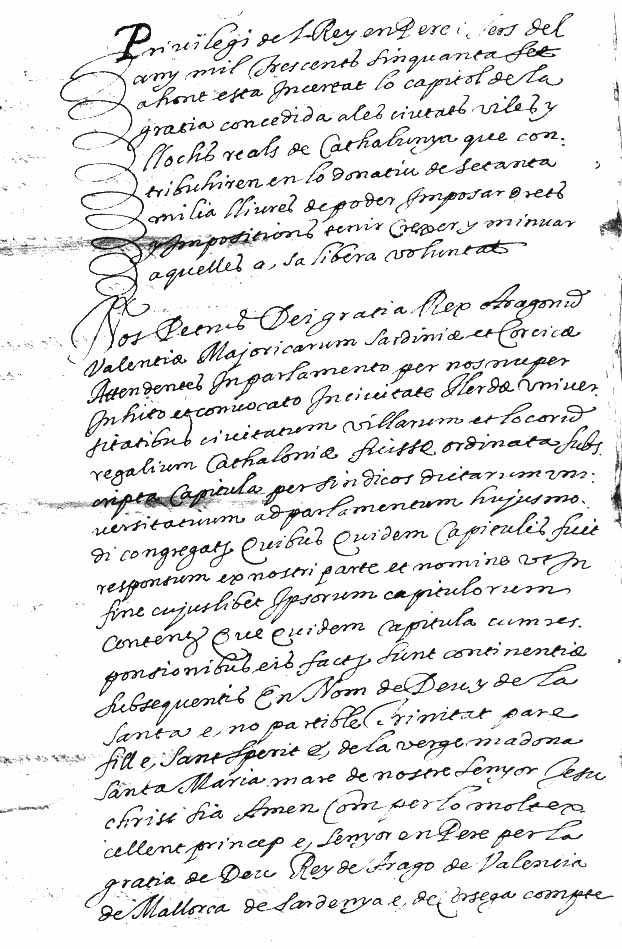 Privilegi del Rey en Pere ters del
any mil trescents sinquanta set
ahont esta Incertat lo capitol de la
gratia concedida a les ciutats viles y
llochs reals de Cathalunya que con-
tribuhiren en lo donatiu de setanta
milia lliures de poder Imposar drets
y Impositions tenir Crexer y minuar
aquelles a, sa libera voluntat
Nos Petrus Dei gratia Rex Aragonũ
Valentiæ Majoricarum Sardiniæ et Corcicæ
Attendentes In parlamento per nos nuper
In hito et convocato In civitate Ilerdæ vniver
sitatibus civitatum villarum et locorũ
regalium Cathaloniæ fuisse ordinata subs.
cripta Capitula per sindicos dictarum vni-
versitatuum ad parlamentum hujusmo-
di congregatȝ Quibus Quidem Capitulis fuit
responsum ex nostri parte et nomine vt In
fine cujuslibet Ipsorum capitulorum
Contenȝ Que Quidem capitula cum res-
ponsionibus eis factȝ sunt continentiæ
subsequentis En Nom de Deu y de la
santa e, no partible Trinitat pare
fill e, sant sperit e, de la verge madona
santa Maria mare de nostre senyor Jesu
christ sia Amen Com per lo molt ex
cellent princep e, senyor en Pere per la
gratia de Deu Rey de Arago de Valencia
de Mallorca de Sardenya e, de Corsega compte